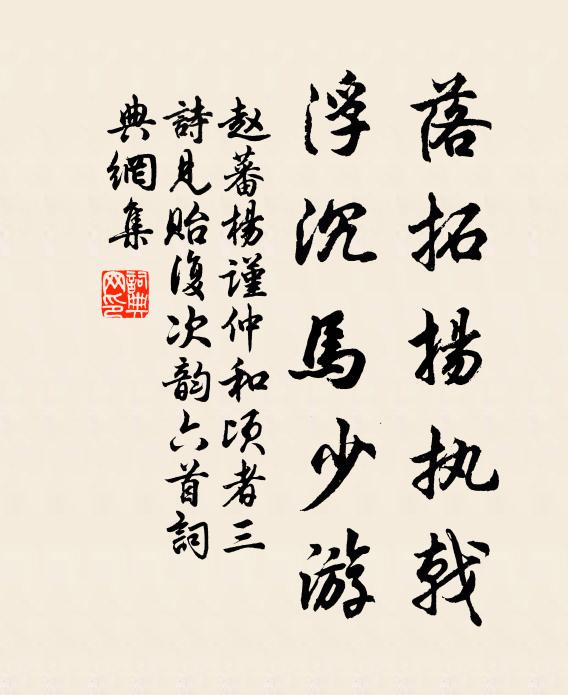 落拓揚执戟
浮沉馬少游
赵蕃楊謹仲和頃者三
詩見貽復次韵六首詞
典網集
詞典
网印